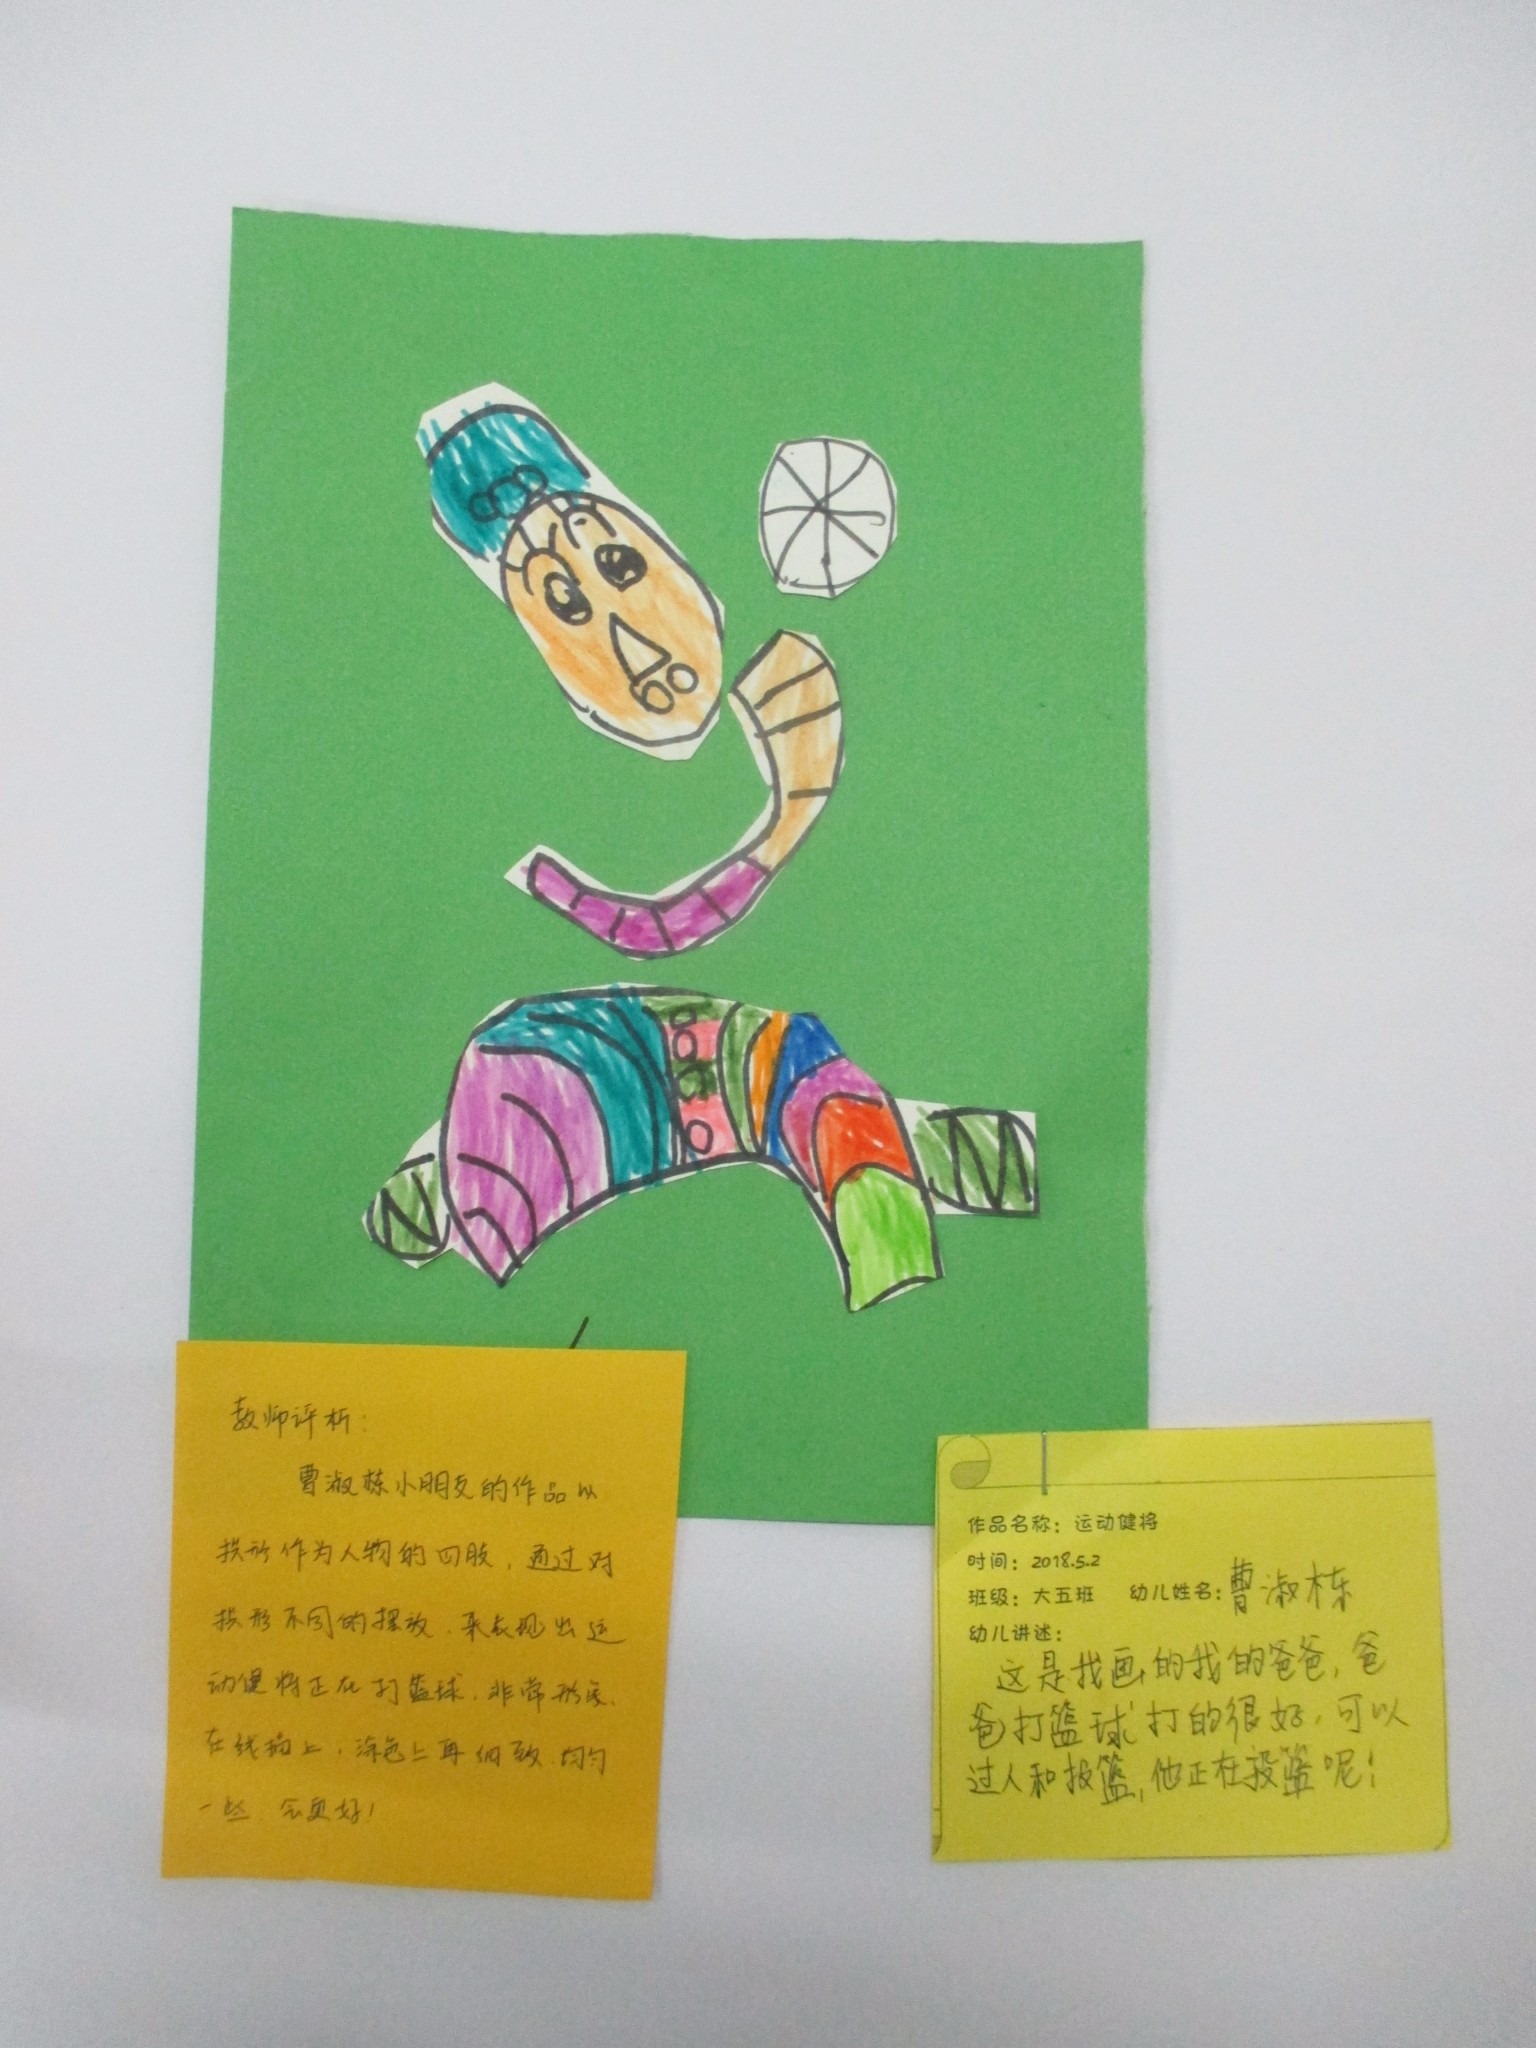 教师评析：
曹淑栋小朋友的作品以
拱形作为人物的四肢，通过对
拱形不同的摆放，来表现出运
动健将正在打篮球，非常形象，
在线描上，涂色上再细致、均匀
一些，会更好！
作品名称：运动健将
时间：2018.5.2
班级：大五班 幼儿姓名：曹淑栋
幼儿讲述：
这是我画的我的爸爸，爸
爸打篮球打的很好，可以
过人和投篮，他正在投篮呢！